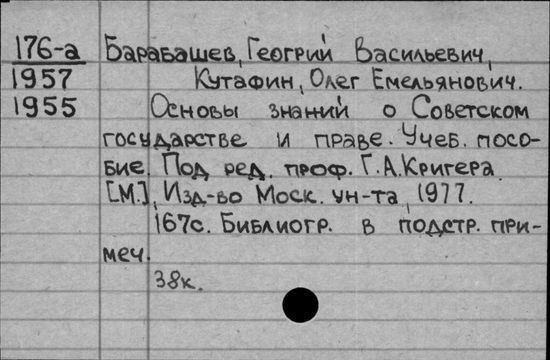 176-а Барабашев, Геогрий Васильевич,
1957 Кутафин, Олег Емельянович.
1955 Основы знаний о Советском
государстве и праве. Учеб. посо-
бие. Под ред. проф. Г.А.Кригера.
[М.], Изд-во Моск. ун-та, 1977.
167с. Библиогр. в подстр. при-
меч.
38к.